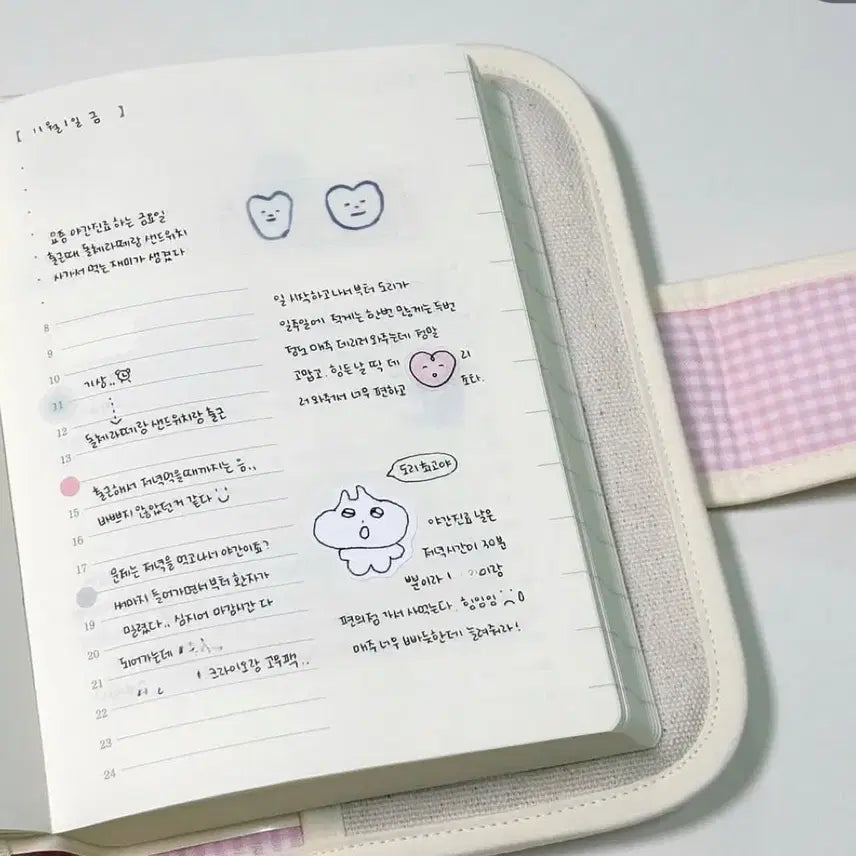 [ 11월 1일 금 ]
· 요즘 야간진료하는 금요일
· 출근때 돌체라떼랑 샌드위치
· 사가서 먹는 재미가 생겼다
8
9
10
기상..
11
12
돌체라떼랑 샌드위치랑 출근
13
출근해서 저녁먹을때까지는 음..
15
바쁘지 않았던거 같다
16
17
문제는 저녁을 먹고나서 야간이죠?
써마지 들어가면서부터 환자가
19
밀렸다.. 심지어 마감시간 다
20
되어가는데
21
크라이오랑 고무팩..
22
23
24
일 시작하고나서부터 도리가
일주일에 적게는 한번 많게는 두번
정도 매주 데리러 와주는데 정말
고맙고. 힘든날 딱 데리
러 와줘서 너무 편하고 포타.
도리 최고야
야간진료 날은
저녁시간이 30분
뿐이라 이랑
편의점 가서 사먹는다. 힝잉잉
매주 너무 빠듯한데 늘려줘라!